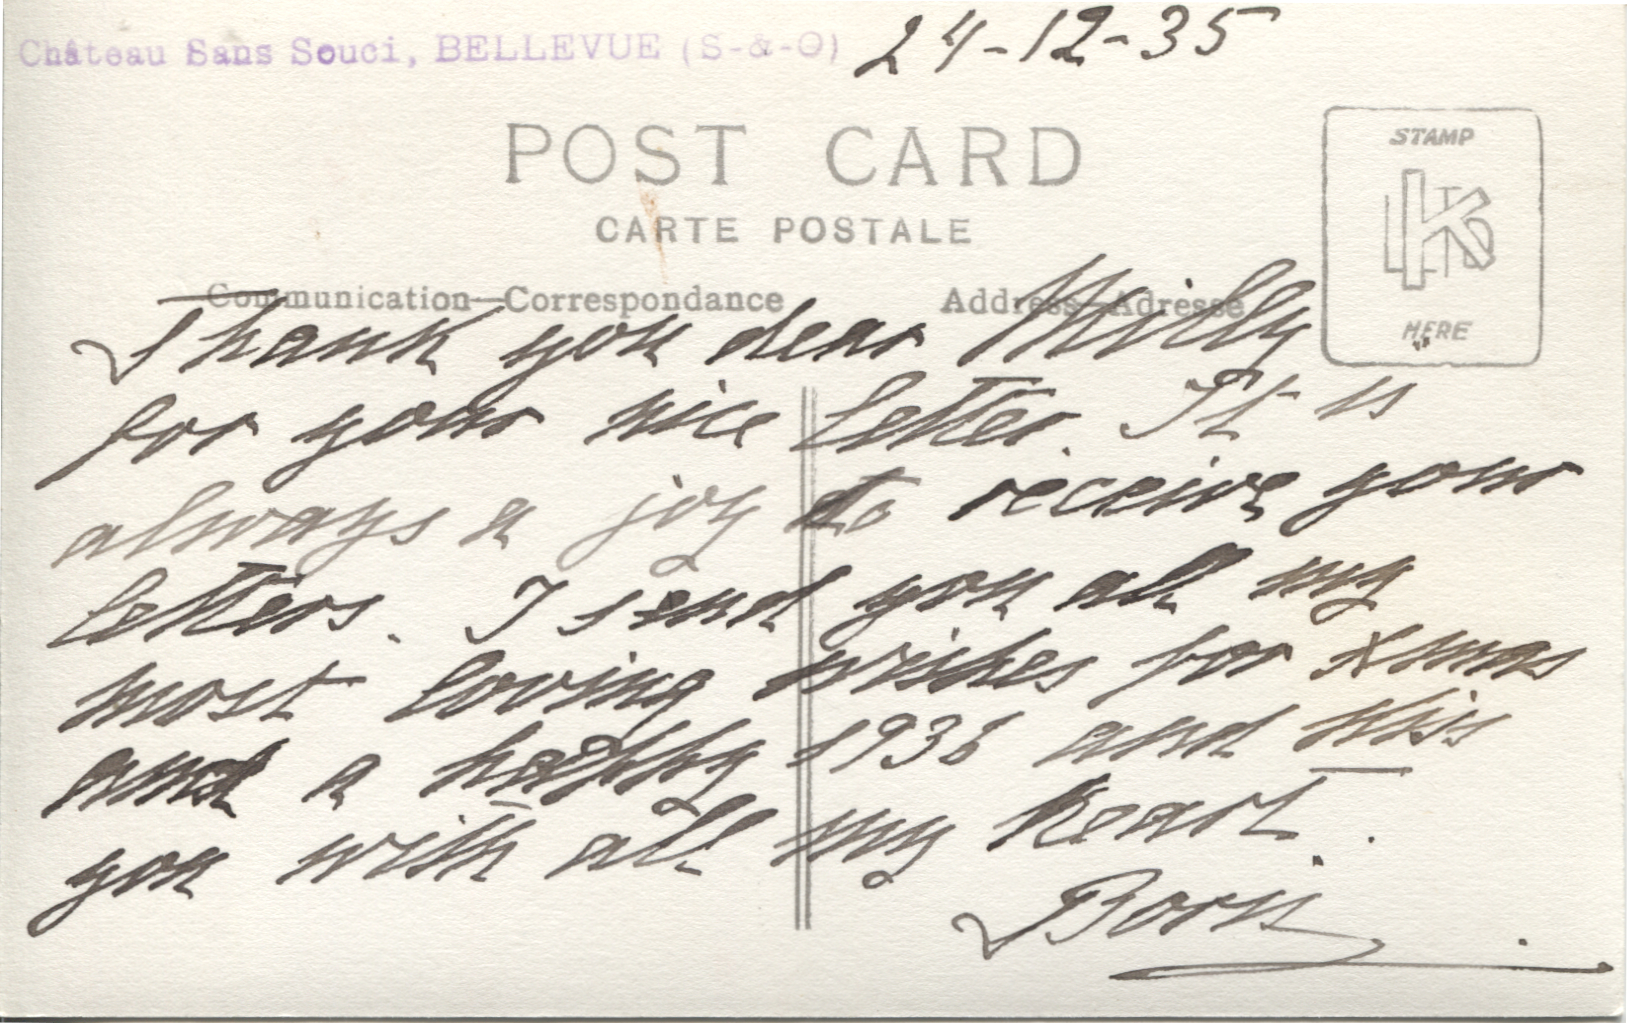 Château Sans Souci, BELLEVUE (S-&-O) 24-12-35
POST CARD
CARTE POSTALE
STAMP
HERE
Communication—Correspondance Address—Adresse
Thank you dear Milly
for your nice letter. It is
always a joy to receive your
letters. I send you all my
most loving wishes for Xmas
and a happy 1936 and kiss
you with all my heart.
Boris